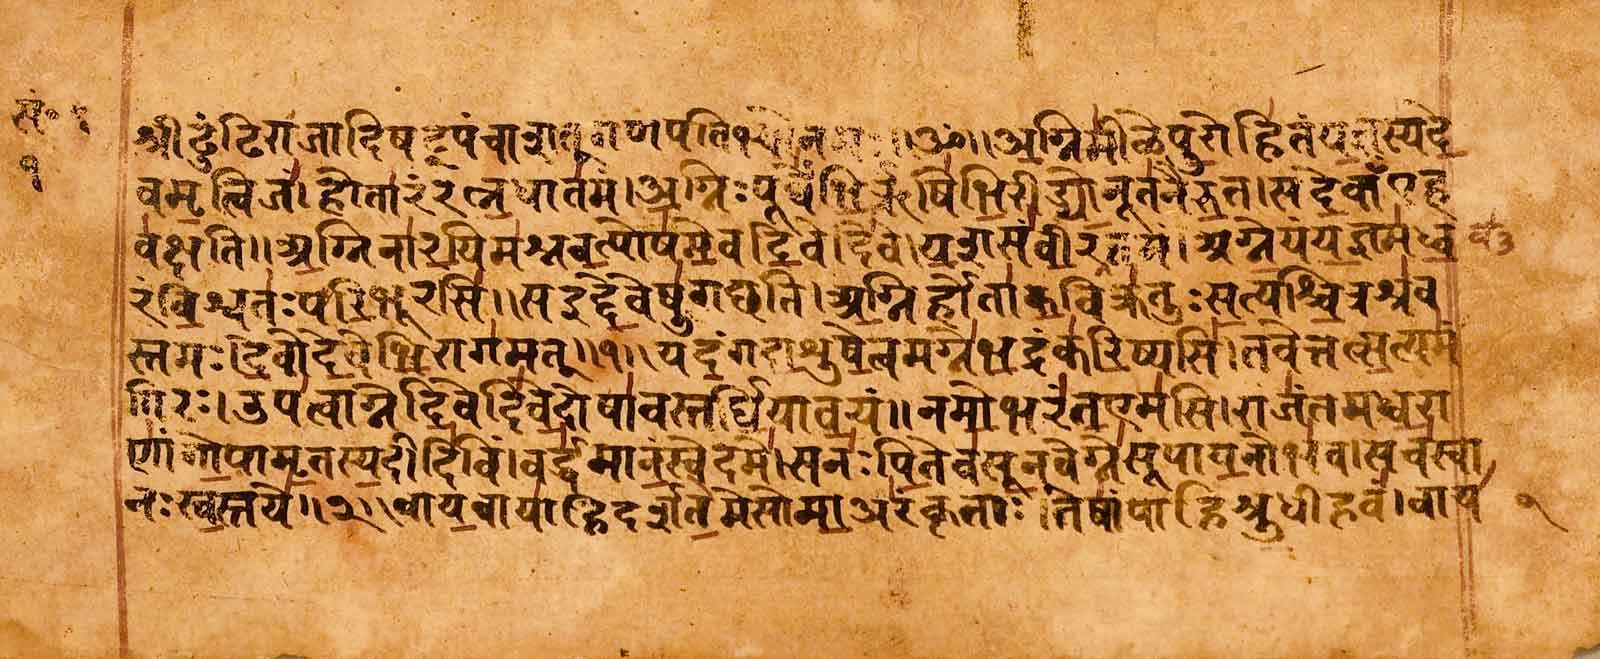 सं॰ १
१
श्रीढुंढिराजादिषट्पंचाशत् गणपतिभ्योनमः॥ॐ॥अग्निमीळेपुरोहितंयज्ञस्यदे
वमृत्विजं।होतारंरत्नधातमं।अग्निःपूर्वेभिर्ऋषिभिरीड्योनूतनैरुत।सदेवाँएह
वक्षति॥अग्निनारयिमश्नवत्पोषमेवदिवेदिवे।यशसंवीरवत्तमं।अग्नेयंयज्ञमध्व
रंविश्वतःपरिभूरसि॥सइद्देवेषुगछति।अग्निर्होताकविक्रतुःसत्यश्चित्रश्रव
स्तमः।देवोदेवेभिरागमत्॥१॥यदंगदाशुषेत्वमग्नेभद्रंकरिष्यसि।तवेत्तत्सत्यमं
गिरः।उपत्वाग्नेदिवेदिवेदोषावस्तर्धियावयं॥नमोभरंतएमसि।राजंतमध्वरा
णांगोपामृतस्यदीदिविं।वर्द्धमानंस्वेदमे।सनःपितेवसूनवेग्नेसूपायनोभव।सचस्वा
नःस्वस्तये॥२॥वायवायाहिदर्शतेमेसोमाअरंकृताः।तेषांपाहिश्रुधीहवं।वाय